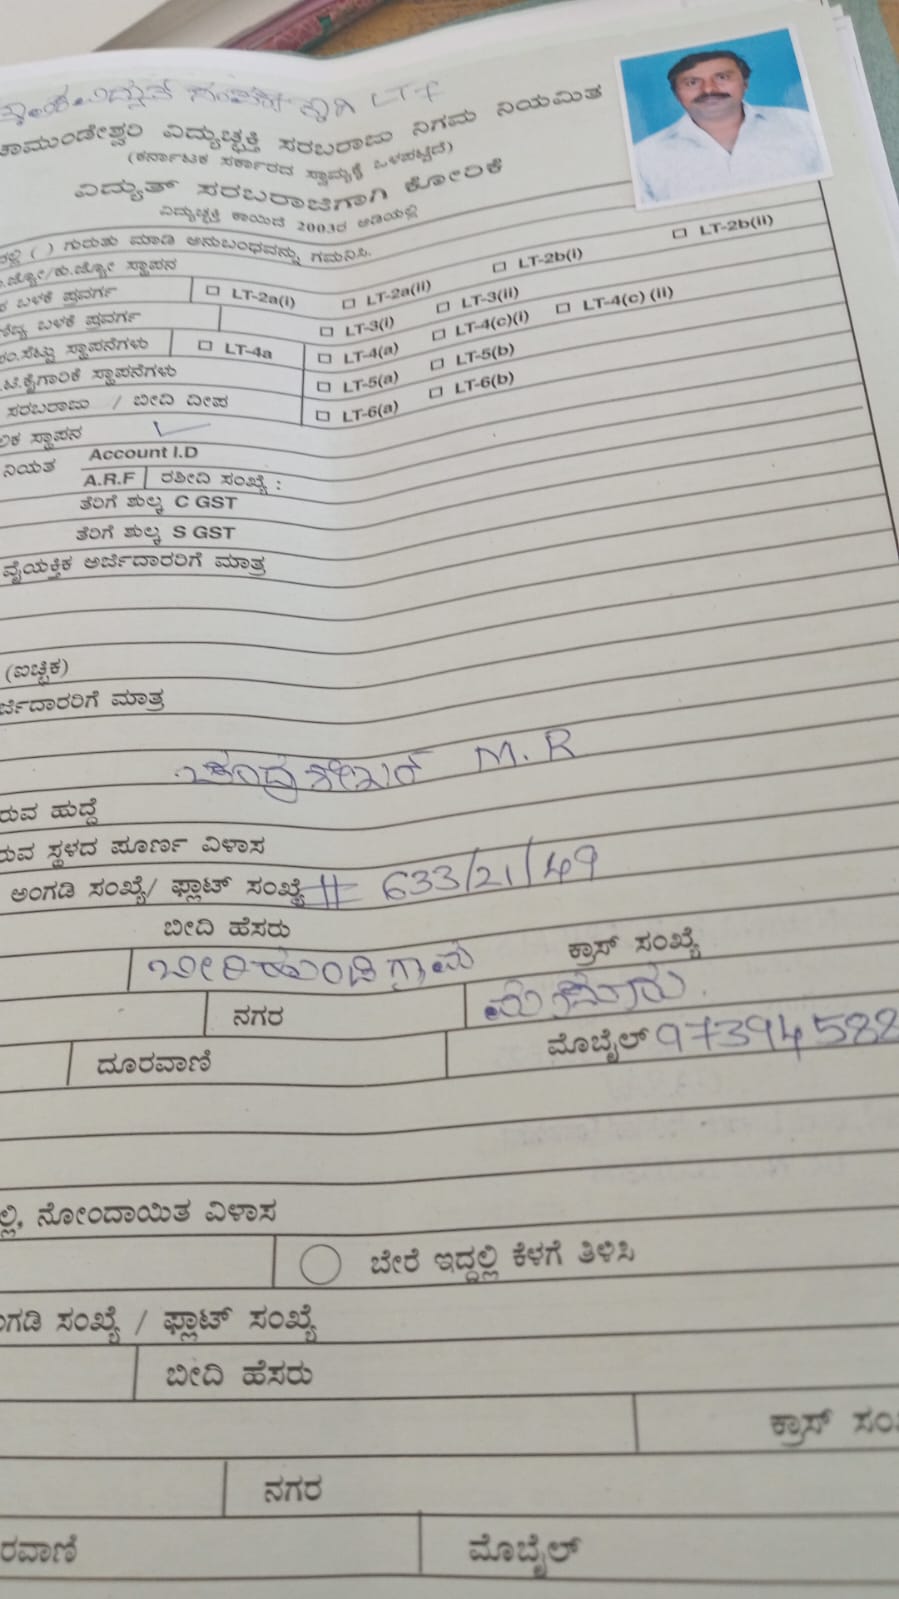 ವಿದ್ಯುಚ್ಛಕ್ತಿ ಸರಬರಾಜು ನಿಗಮ ನಿಯಮಿತ
(ಕರ್ನಾಟಕ ಸರ್ಕಾರದ ಸ್ವಾಮ್ಯಕ್ಕೆ ಒಳಪಟ್ಟಿದೆ)
ವಿದ್ಯುತ್ ಸರಬರಾಜಿಗಾಗಿ ಕೋರಿಕೆ
ವಿದ್ಯುಚ್ಛಕ್ತಿ ಕಾಯಿದೆ 2003ರ ಅಡಿಯಲ್ಲಿ
( ) ಗುರುತು ಮಾಡಿ ಅನುಬಂಧವನ್ನು ಗಮನಿಸಿ.
ಸ್ಥಾಪನ LT-2b(i) LT-2b(ii)
ಬಳಕೆ ಪ್ರವರ್ಗ LT-2a(i) LT-2a(ii)
ಬಳಕೆ ಪ್ರವರ್ಗ LT-3(i) LT-3(ii)
ಸ್ಥಾಪನೆಗಳು LT-4a LT-4(a) LT-4(c)(i) LT-4(c) (ii)
ಸ್ಥಾಪನೆಗಳು LT-5(a) LT-5(b)
ಸರಬರಾಜು / ಬೀದಿ ದೀಪ LT-6(a) LT-6(b)
ಸ್ಥಾಪನ
ನಿಯತ Account I.D
A.R.F ರಶೀದಿ ಸಂಖ್ಯೆ :
ತೆರಿಗೆ ಶುಲ್ಕ C GST
ತೆರಿಗೆ ಶುಲ್ಕ S GST
ವೈಯಕ್ತಿಕ ಅರ್ಜಿದಾರರಿಗೆ ಮಾತ್ರ
(ಐಚ್ಛಿಕ)
ಮಾತ್ರ
ಚಂದ್ರಶೇಖರ್ M.R
ಹುದ್ದೆ
ಸ್ಥಳದ ಪೂರ್ಣ ವಿಳಾಸ
ಅಂಗಡಿ ಸಂಖ್ಯೆ/ ಫ್ಲಾಟ್ ಸಂಖ್ಯೆ # 633/21/49
ಬೀದಿ ಹೆಸರು
ಬೀರಿಹುಂಡಿ ಗ್ರಾಮ ಕ್ರಾಸ್ ಸಂಖ್ಯೆ
ನಗರ ಮೈಸೂರು.
ದೂರವಾಣಿ ಮೊಬೈಲ್ 97394588
ನೋಂದಾಯಿತ ವಿಳಾಸ
ಬೇರೆ ಇದ್ದಲ್ಲಿ ಕೆಳಗೆ ತಿಳಿಸಿ
ಸಂಖ್ಯೆ / ಫ್ಲಾಟ್ ಸಂಖ್ಯೆ
ಬೀದಿ ಹೆಸರು
ಕ್ರಾಸ್
ನಗರ
ಮೊಬೈಲ್